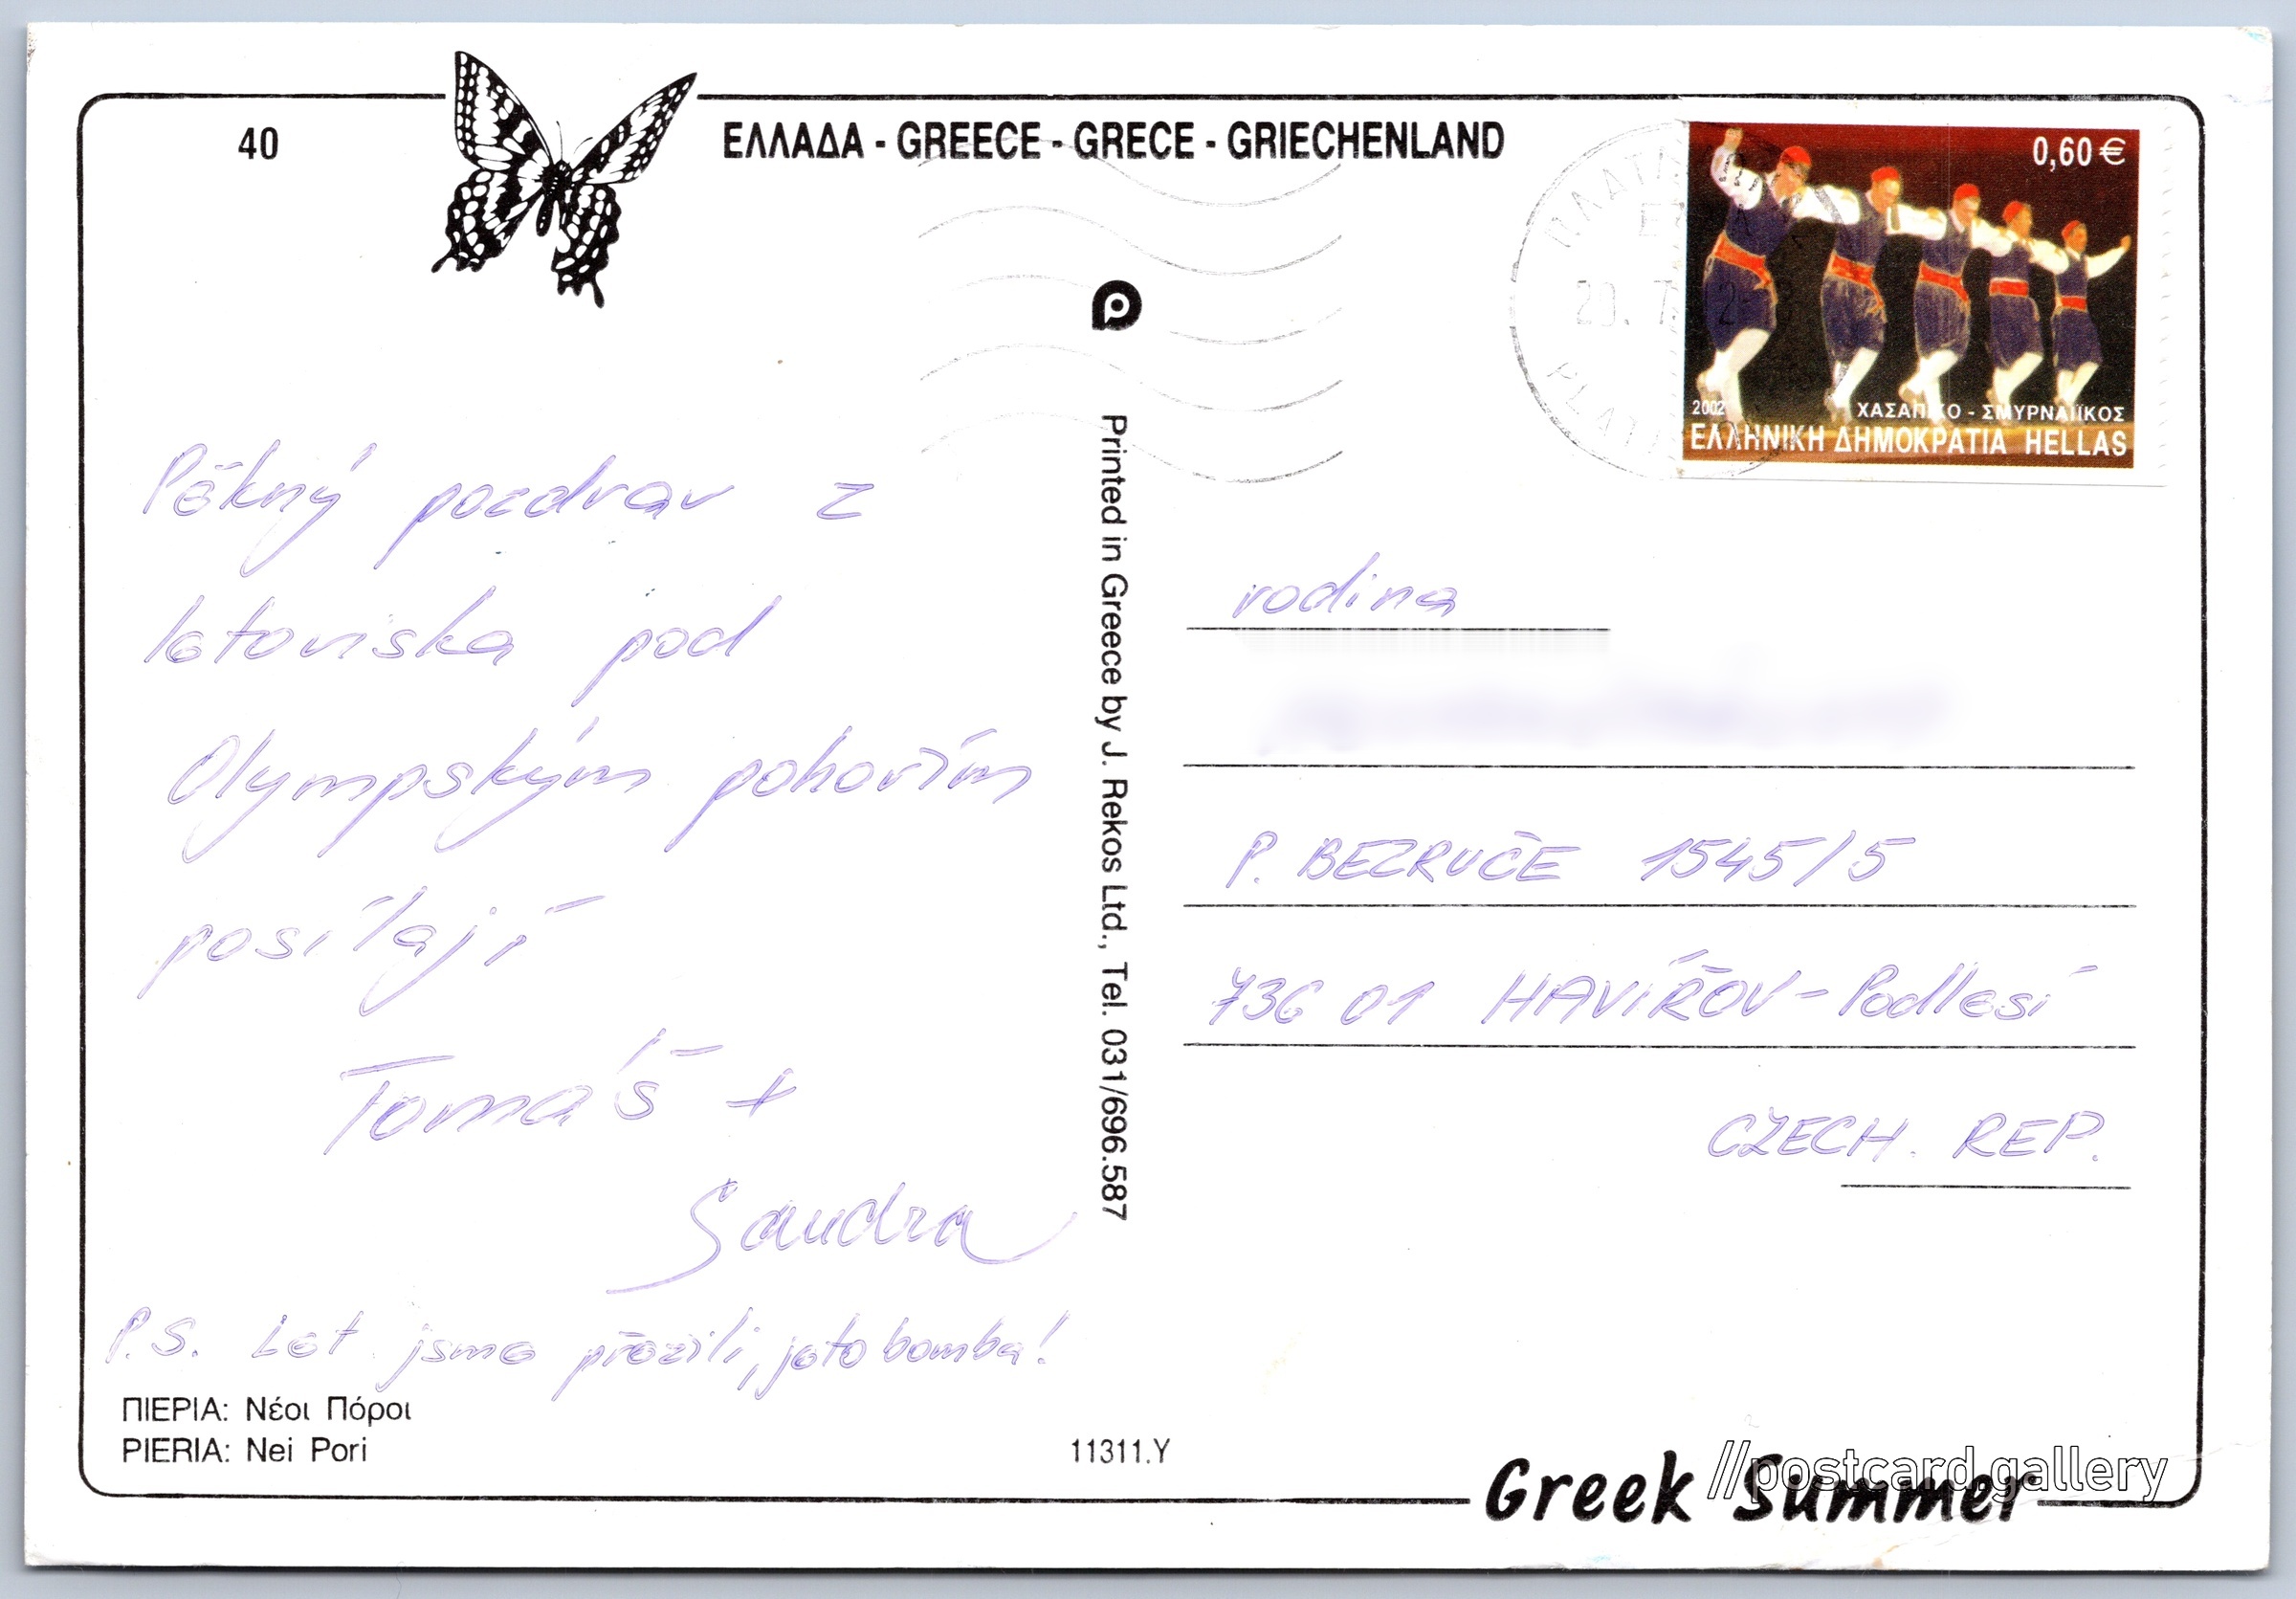 40
ΕΛΛΑΔΑ - GREECE - GRECE - GRIECHENLAND
0,60 €
2002
ΧΑΣΑΠΙΚΟ - ΣΜΥΡΝΑΙΙΚΟΣ
ΕΛΛΗΝΙΚΗ ΔΗΜΟΚΡΑΤΙΑ HELLAS
Pěkný pozdrav z
letoviska pod
Olympským pohořím
posílají
Tomáš +
Sandra
P.S. Let jsme přežili, jeto bomba!
ΠΙΕΡΙΑ: Νέοι Πόροι
PIERIA: Nei Pori
Printed in Greece by J. Rekos Ltd., Tel. 031/696.587
rodina
P. BEZRUČE 1545/5
736 01 HAVÍŘOV - Podlesí
CZECH. REP.
11311.Y
Greek Summer
//postcard.gallery